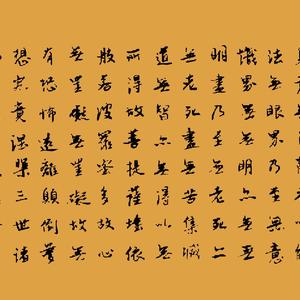 法無眼界乃至無意
識界無無明亦無無
明盡乃至無老死亦
無老死盡無苦集滅
道無智亦無得以無
所得故菩提薩埵依
般若波羅蜜多故心
無罣礙無罣礙故無
有恐怖遠離顛倒夢
想究竟涅槃三世諸